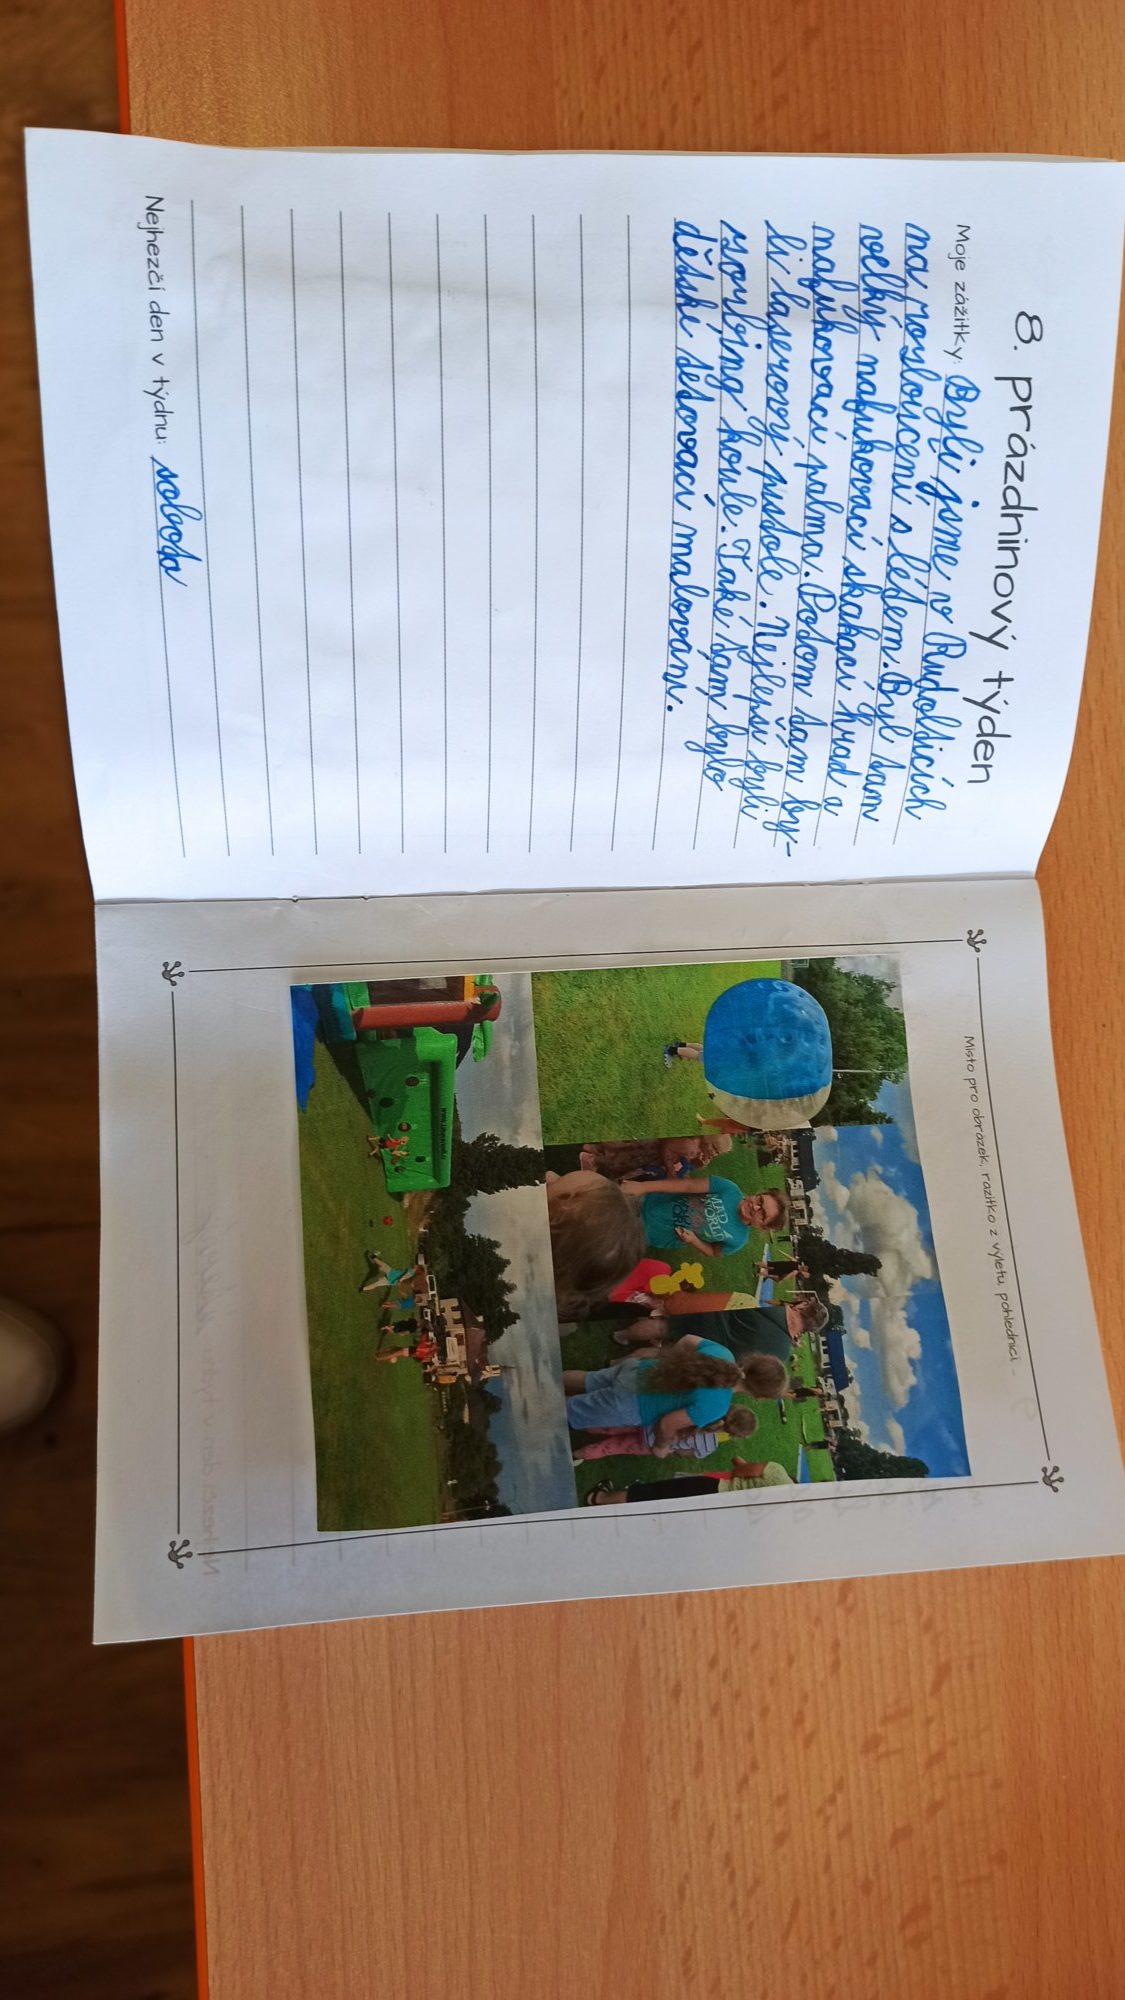 8. prázdninový týden
Moje zážitky: Byli jsme v Rudolticích
na rosloučení s létem. Byl tam
velký nafukovací skakací hrad a
nafukovací palma. Potom tam by-
li laserový pistole. Nejlepší byli
zorbing koule. Také tam bylo
dětské tetovací malování.
Nejhezčí den v týdnu: sobota
Místo pro obrázek, razítko z výletu, pohlednici ...
MAD
WORLD